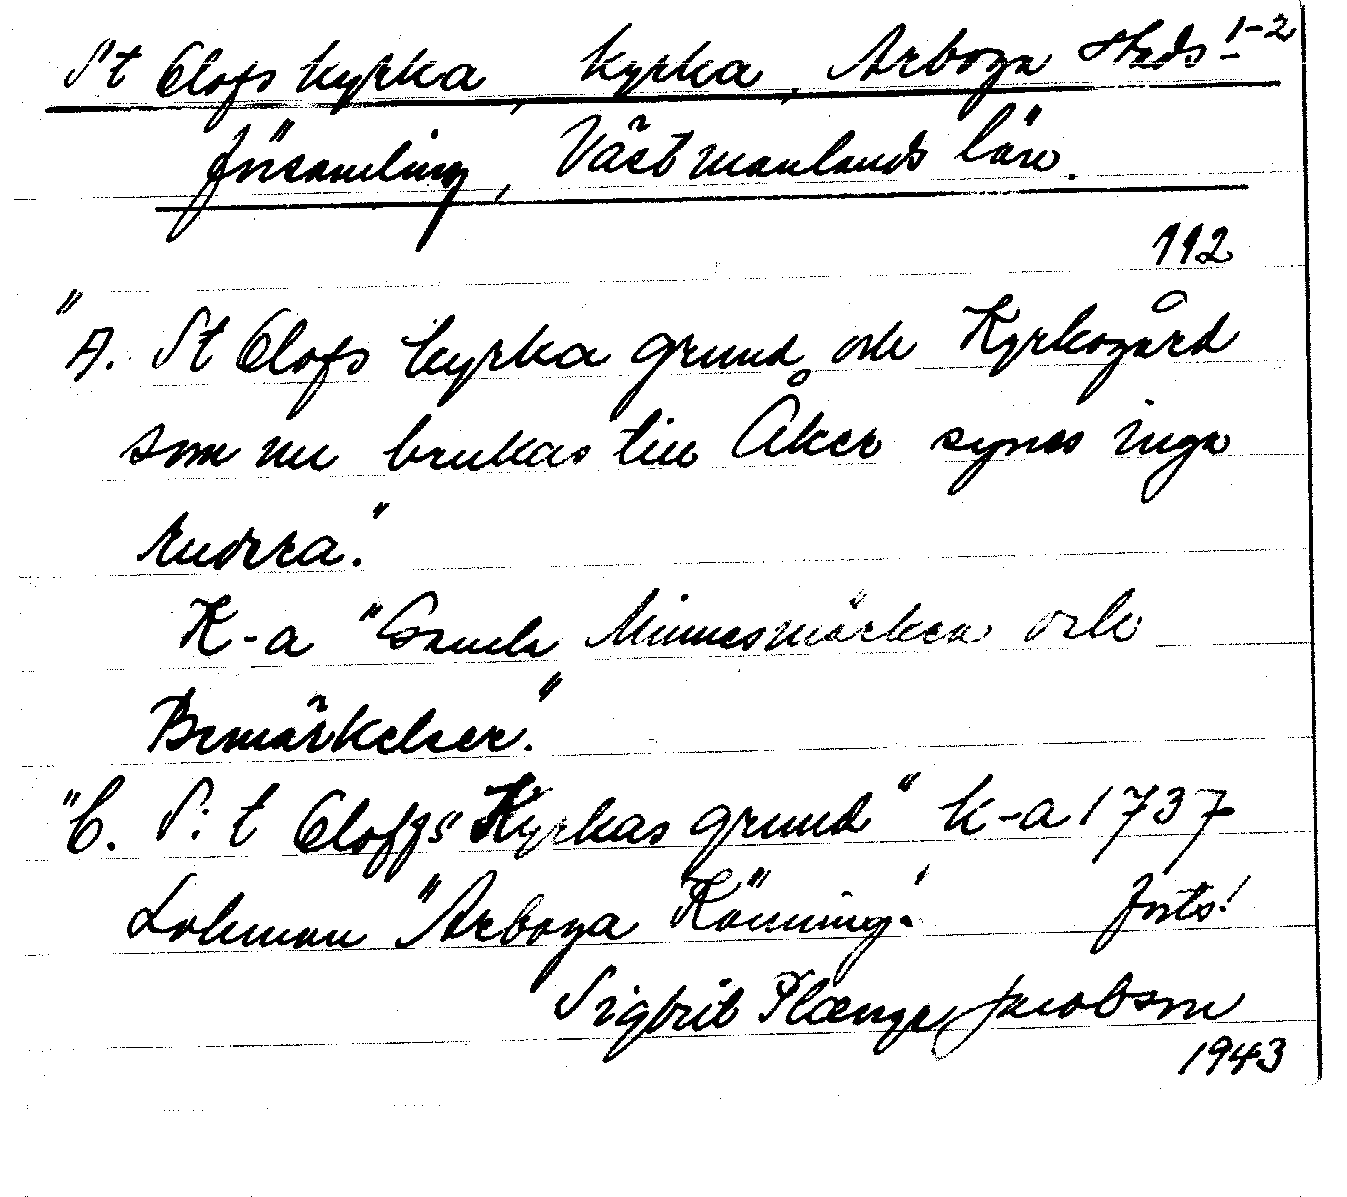 St Olofs kyrka, kyrka, Arboga Stads 1-2
församling, Västmanlands län.
112
"A. St Olofs kyrka grund och Kyrkogård
som nu brukas till Åker synes inga
rudera."
K-a "Gamla Minnesmärken och
Bemärkelser."
"C. S:t Oloffs Kyrkas grund" k-a 1737
Lohman "Arboga Känning." forts!
Sigbrit Plænge Jacobson
1943